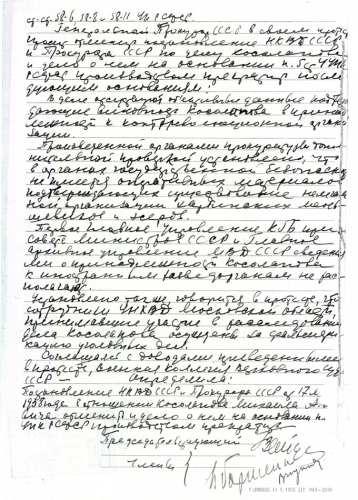 ст.ст. 58-6, 58-8 и 58-11 УК РСФСР.
Генеральный Прокурор СССР в своем проте-
сте просит отменить постановление НКВД СССР
и Прокурора СССР по делу Косолапова
и дело о нем на основании п. 5 ст. 4 УПК
РСФСР производством прекратить по сле-
дующим основаниям:
В деле отсутствуют объективные данные подтвер-
ждающие виновность Косолапова в принад-
лежности к контрреволюционной органи-
зации.
Произведенной органами прокуратуры допол-
нительной проверкой установлено, что
в органах государственной безопасности
не имеется оперативных материалов
подтверждающих существование
организации мень-
шевиков и эсеров.
Первое Главное Управление КГБ при
Совете Министров СССР и Главное
архивное управление МВД СССР сведения-
ми о принадлежности Косолапова
к иностранным разведорганам не рас-
полагают.
Установлено также, говорится в протесте, что
сотрудники УНКВД Московской области,
принимавшие участие в расследовании
дела Косолапова осуждены за фальсифи-
кацию уголовных дел.
Соглашаясь с доводами приведенными
в протесте, Военная коллегия Верховного Суда
СССР —
определила:
Постановление НКВД СССР и Прокурора СССР от 17
1938 года в отношении Косолапова Михаила
вича отменить и дело о нем на основании п.
УПК РСФСР производством прекратить
Председательствующий
Члены